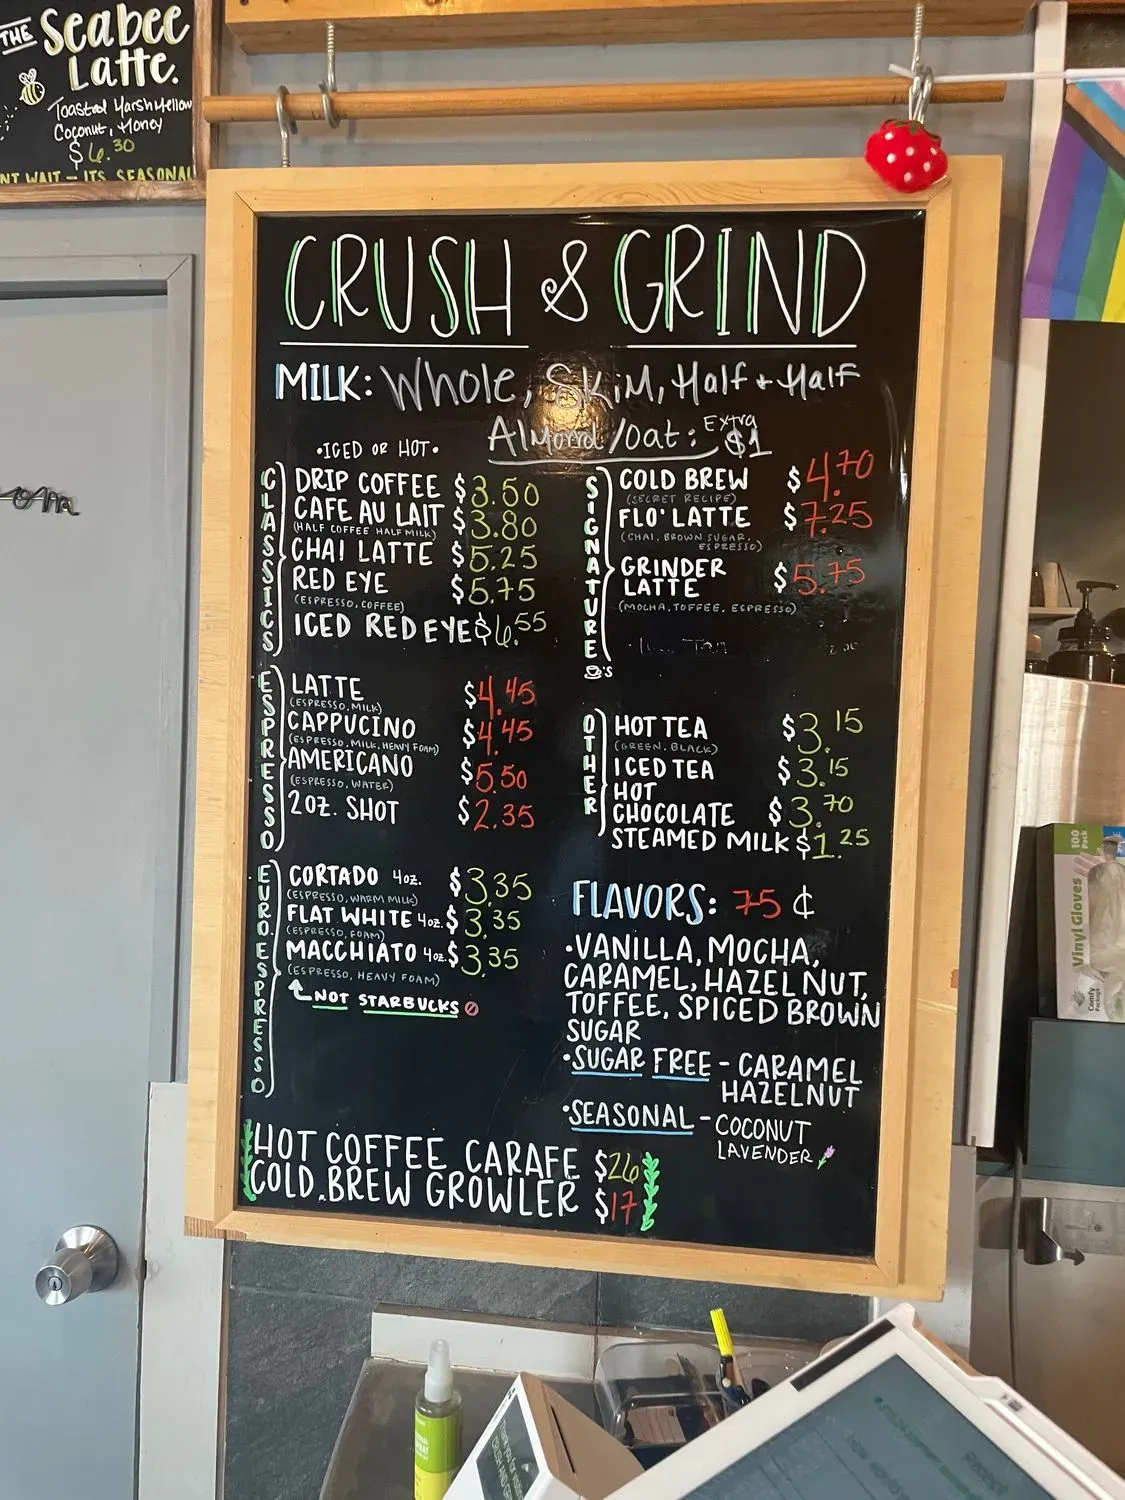 THE Seabee
Latte.
Toasted Marshmellow
Coconut, Honey
$6.30
NT WAIT - ITS SEASONAL
CRUSH & GRIND
MILK: Whole, Skim, Half + Half
Almond/Oat: Extra $1
•ICED OR HOT•
CLASSICS
DRIP COFFEE $3.50
CAFE AU LAIT $3.80
(HALF COFFEE HALF MILK)
CHAI LATTE $5.25
RED EYE $5.75
(ESPRESSO, COFFEE)
ICED RED EYE $6.55
ESPRESSO
LATTE $4.45
(ESPRESSO, MILK)
CAPPUCINO $4.45
(ESPRESSO, MILK, HEAVY FOAM)
AMERICANO $5.50
(ESPRESSO, WATER)
2OZ. SHOT $2.35
EURO. ESPRESSO
CORTADO 4oz. $3.35
(ESPRESSO, WARM MILK)
FLAT WHITE 4oz. $3.35
(ESPRESSO, FOAM)
MACCHIATO 4oz. $3.35
(ESPRESSO, HEAVY FOAM)
NOT STARBUCKS
SIGNATURE
'S
COLD BREW $4.70
(SECRET RECIPE)
FLO' LATTE $7.25
(CHAI, BROWN SUGAR,
ESPRESSO)
GRINDER
LATTE $5.75
(MOCHA, TOFFEE, ESPRESSO)
OTHER
HOT TEA $3.15
(GREEN, BLACK)
ICED TEA $3.15
HOT
CHOCOLATE $3.70
STEAMED MILK $1.25
FLAVORS: 75¢
•VANILLA, MOCHA,
CARAMEL, HAZELNUT,
TOFFEE, SPICED BROWN
SUGAR
•SUGAR FREE - CARAMEL
HAZELNUT
•SEASONAL - COCONUT
LAVENDER
HOT COFFEE CARAFE $26
COLD BREW GROWLER $17
100
Pack
Vinyl Gloves
Comfy
Package